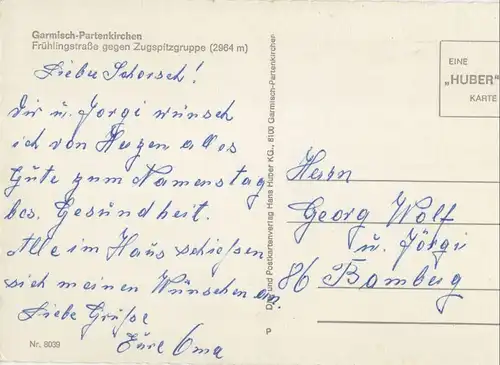 Garmisch-Partenkirchen
Frühlingstraße gegen Zugspitzgruppe (2964 m)
Lieber Schorsch!
Dir u. Jorgi wünsch
ich von Herzen alles
Gute zum Namenstag
bes. Gesundheit.
Alle im Haus schießen
sich meinen Wünschen an.
Liebe Grüße
Eure Oma
Nr. 8039
und Postkartenverlag Hans Huber KG., 8100 Garmisch-Partenkirchen
P
EINE
„HUBER"
KARTE
Herrn
Georg Wolf
u. Jörgi
86 Bamberg